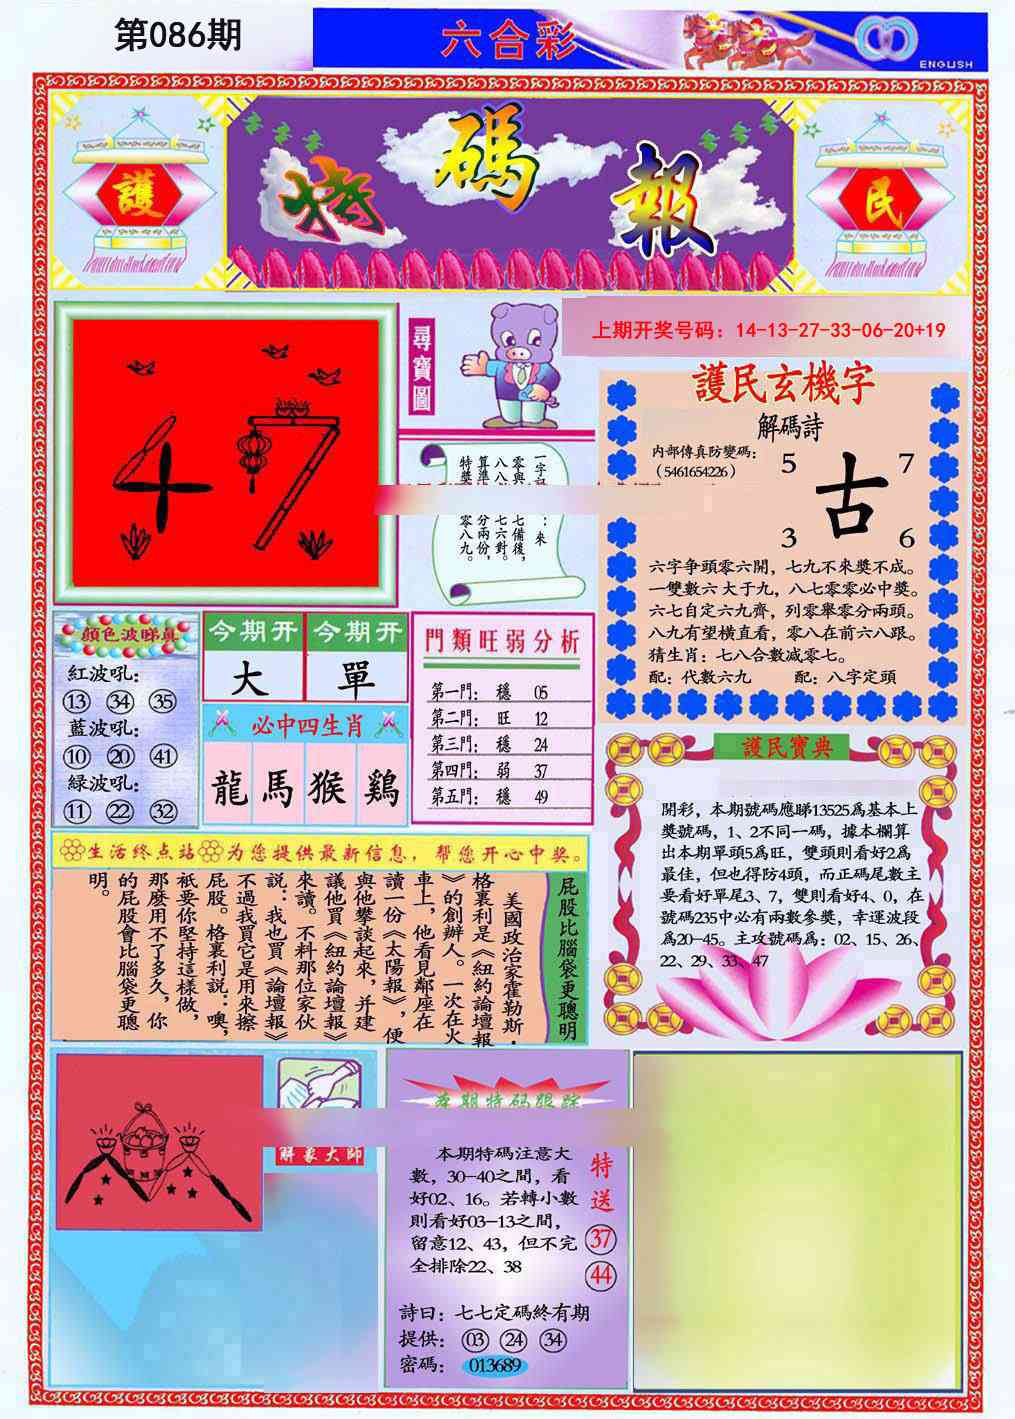 第086期
六合彩
ENGLISH
護
特碼報
民
尋寶圖
上期开奖号码：14-13-27-33-06-20+19
47
護民玄機字
解碼詩
内部傳真防變碼：
（5461654226）
5
7
古
3
6
六字争頭零六開，七九不來獎不成。
一雙數六大于九，八七零零必中獎。
六七自定六九齊，列零舉零分兩頭。
八九有望橫直看，零八在前六八跟。
猜生肖：七八合數减零七。
配：代數六九
配：八字定頭
顏色波睇真
紅波吼：
13 34 35
藍波吼：
10 20 41
緑波吼：
11 22 32
今期开
今期开
大
單
必中四生肖
龍 馬 猴 鷄
門類旺弱分析
第一門： 穩 05
第二門： 旺 12
第三門： 穩 24
第四門： 弱 37
第五門： 穩 49
護民寶典
開彩，本期號碼應睇13525爲基本上
獎號碼，1、2不同一碼，據本欄算
出本期單頭5爲旺，雙頭則看好2爲
最佳，但也得防4頭，而正碼尾數主
要看好單尾3、7，雙則看好4、0，在
號碼235中必有兩數參獎，幸運波段
爲20-45。主攻號碼爲：02、15、26、
22、29、33、47
生活终点站 为您提供最新信息，帮您开心中奖。
屁股比腦袋更聰明
美國政治家霍勒斯·
格裏利是《紐約論壇報
》的創辦人。一次在火
車上，他看見鄰座在
讀一份《太陽報》，便
與他攀談起來，并建
議他買《紐約論壇報》
來讀。不料那位家伙
説：我也買《論壇報》
不過我買它是用來擦
屁股。格裏利説：噢，
衹要你堅持這樣做，
那麽用不了多久，你
的屁股會比腦袋更聰
明。
解象大師
本期特码跟踪
本期特碼注意大
數，30-40之間，看
好02、16。若轉小數
則看好03-13之間，
留意12、43，但不完
全排除22、38
特送
37
44
詩曰：七七定碼終有期
提供： 03 24 34
密碼： 013689